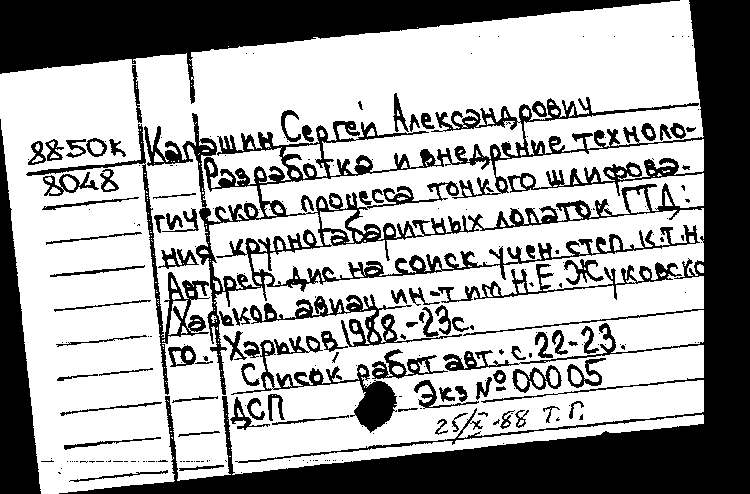 88-50к
8048
Капашин, Сергей Александрович
Разработка и внедрение техноло-
гического процесса тонкого шлифова-
ния крупногабаритных лопаток ГТД:
Автореф. дис. на соиск. учен. степ. к.т.н.
/Харьков. авиац. ин-т им. Н.Е. Жуковско
го. - Харьков 1988.-23с.
Список работ авт.: с.22-23.
ДСП Экз № 00005
25/X-88 Т.Г.